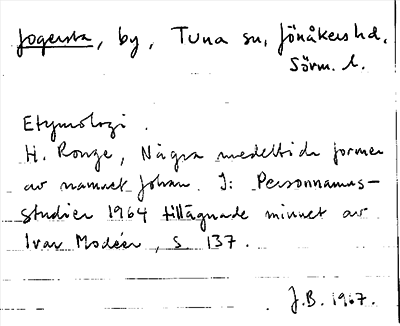 Jogersta, by, Tuna sn, Jönåkers hd,
Sörm. l.
Etymologi.
H. Ronge, Några medeltida former
av namnet Johan. I: Personnamns-
studier 1964 tillägnade minnet av
Ivar Modéer, s. 137.
J.B. 1967.